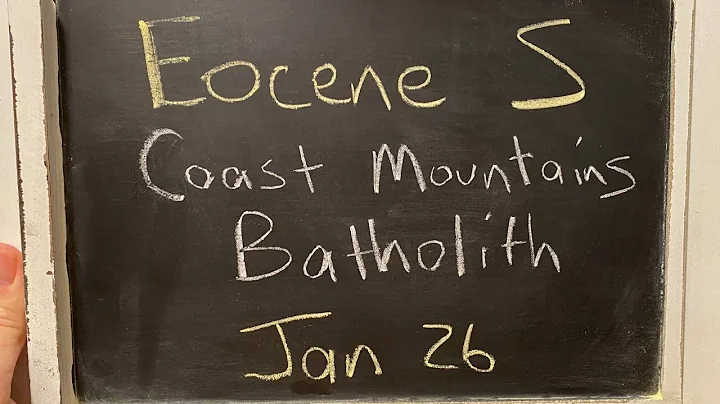 Eocene S
Coast Mountains
Batholith
Jan 26